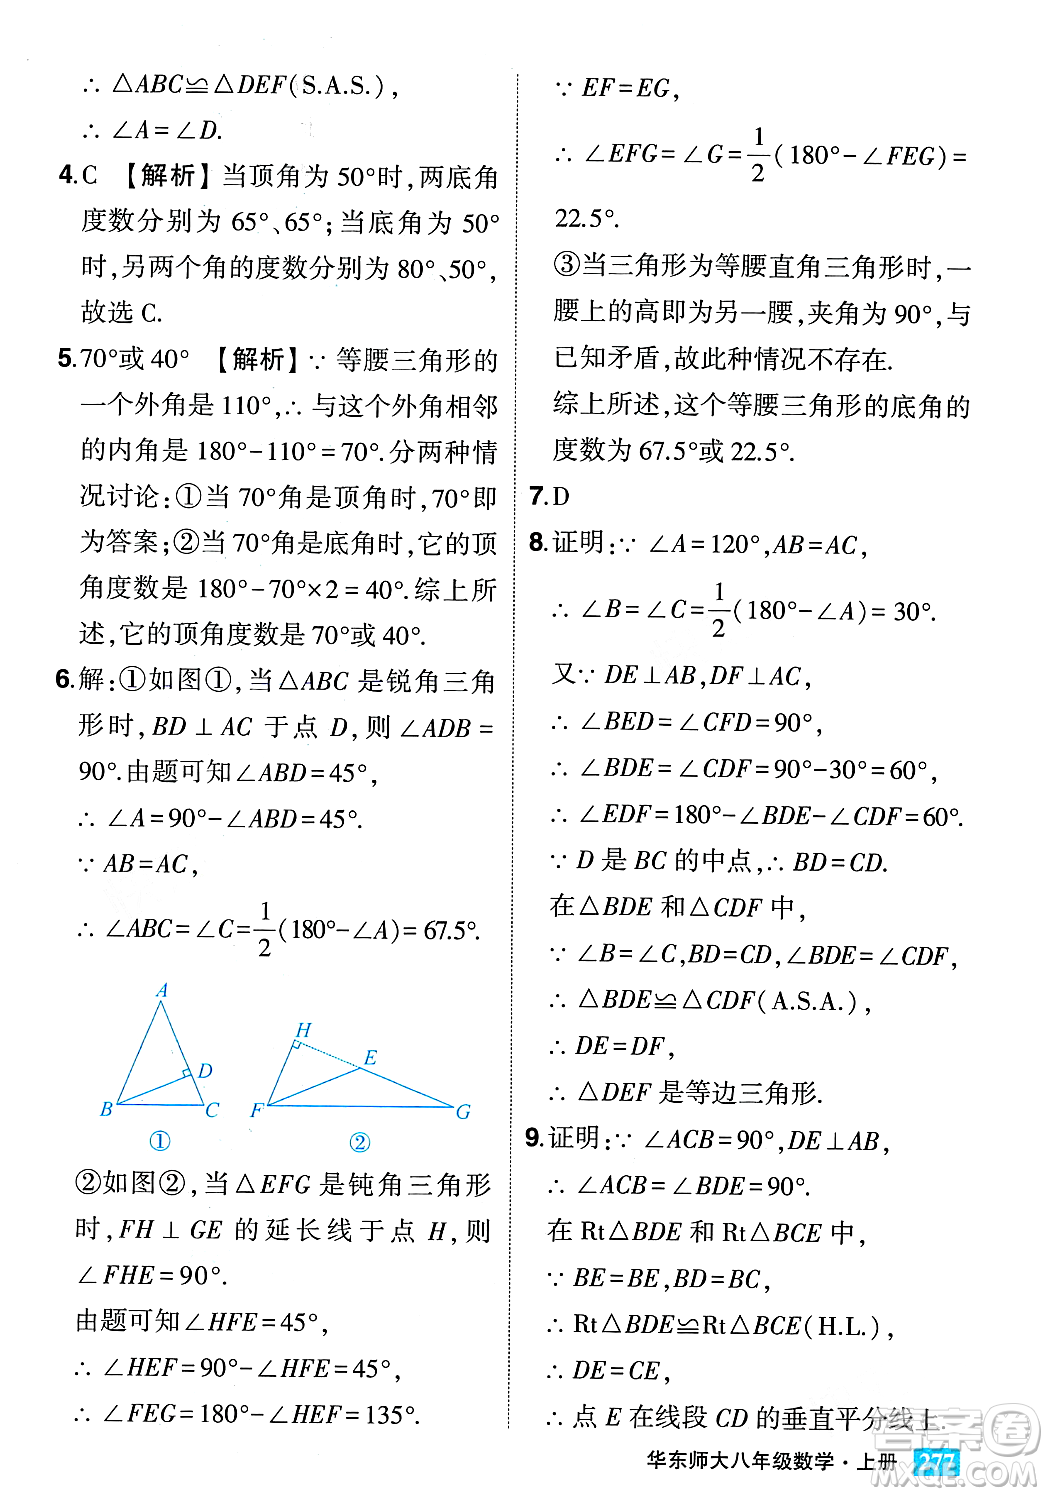 ∴ △ABC≌△DEF(S.A.S.),
∴ ∠A=∠D.
4.C 【解析】当顶角为 50°时,两底角
度数分别为 65°、65°;当底角为 50°
时,另两个角的度数分别为 80°、50°,
故选 C.
5.70°或 40° 【解析】∵ 等腰三角形的
一个外角是 110°,∴ 与这个外角相邻
的内角是 180°-110°=70°.分两种情
况讨论:①当 70°角是顶角时,70°即
为答案;②当 70°角是底角时,它的顶
角度数是 180°-70°×2=40°.综上所
述,它的顶角度数是 70°或 40°.
6.解:①如图①,当△ABC 是锐角三角
形时,BD⊥AC 于点 D,则∠ADB=
90°.由题可知∠ABD=45°,
∴ ∠A=90°-∠ABD=45°.
∵ AB=AC,
∴ ∠ABC=∠C=1/2(180°-∠A)=67.5°.
A
D
B
C
①
H
E
F
G
②
②如图②,当△EFG 是钝角三角形
时,FH⊥GE 的延长线于点 H,则
∠FHE=90°.
由题可知∠HFE=45°,
∴ ∠HEF=90°-∠HFE=45°,
∴ ∠FEG=180°-∠HEF=135°.
∵ EF=EG,
∴ ∠EFG=∠G=1/2(180°-∠FEG)=
22.5°.
③当三角形为等腰直角三角形时,一
腰上的高即为另一腰,夹角为 90°,与
已知矛盾,故此种情况不存在.
综上所述,这个等腰三角形的底角的
度数为 67.5°或 22.5°.
7.D
8.证明:∵ ∠A=120°,AB=AC,
∴ ∠B=∠C=1/2(180°-∠A)=30°.
又∵ DE⊥AB,DF⊥AC,
∴ ∠BED=∠CFD=90°,
∴ ∠BDE=∠CDF=90°-30°=60°,
∴ ∠EDF=180°-∠BDE-∠CDF=60°.
∵ D 是 BC 的中点,∴ BD=CD.
在△BDE 和△CDF 中,
∵ ∠B=∠C,BD=CD,∠BDE=∠CDF,
∴ △BDE≌△CDF(A.S.A.),
∴ DE=DF,
∴ △DEF 是等边三角形.
9.证明:∵ ∠ACB=90°,DE⊥AB,
∴ ∠ACB=∠BDE=90°.
在 Rt△BDE 和 Rt△BCE 中,
∵ BE=BE,BD=BC,
∴ Rt△BDE≌Rt△BCE(H.L.),
∴ DE=CE,
∴ 点 E 在线段 CD 的垂直平分线上.
华东师大八年级数学·上册 277
答案圈
MXQE.COM